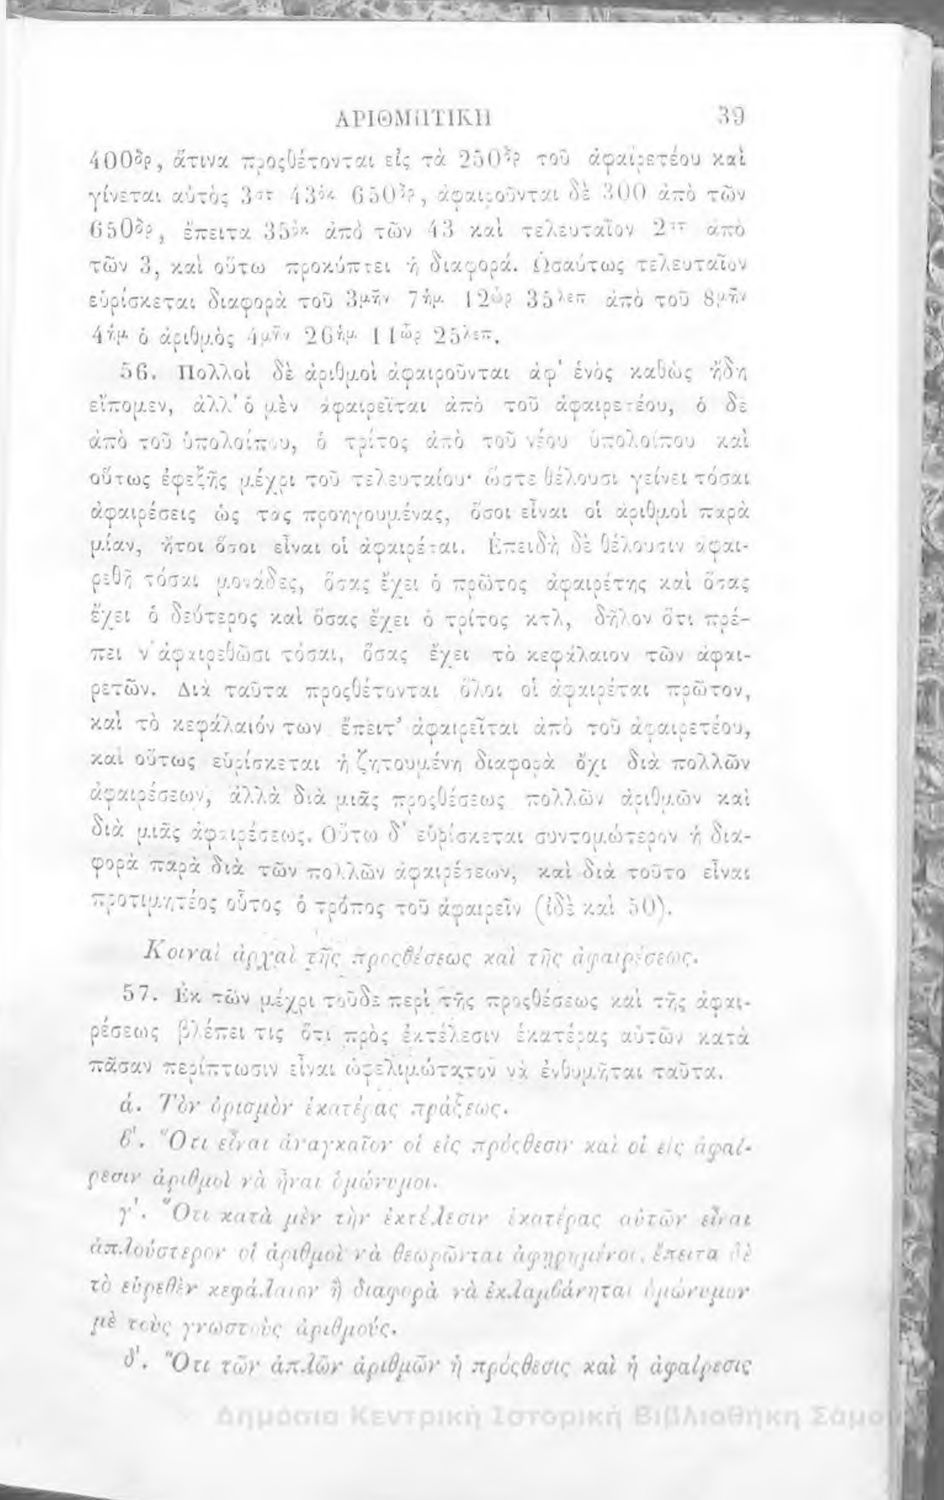 ΑΡΙΘΜΗΤΙΚΗ 39
400δρ, ἅτινα προςθέτονται εἰς τὰ 250δρ τοῦ ἀφαιρετέου καὶ
γίνεται αὐτὸς 3στ 43ὀκ 650δρ, ἀφαιροῦνται δὲ 300 ἀπὸ τῶν
650δρ, ἔπειτα 35ὀκ ἀπὸ τῶν 43 καὶ τελευταῖον 2στ ἀπὸ
τῶν 3, καὶ οὕτω προκύπτει ἡ διαφορά. Ὡσαύτως τελευταῖον
εὑρίσκεται διαφορὰ τοῦ 3μῆν 7ἡμ 12ὡρ 35λεπ ἀπὸ τοῦ 8μῆν
4ἡμ ὁ ἀριθμὸς 4μῆν 26ἡμ 11ὡρ 25λεπ.
56. Πολλοὶ δὲ ἀριθμοὶ ἀφαιροῦνται ἀφ' ἑνὸς καθὼς ἤδη
εἴπομεν, ἀλλ' ὁ μὲν ἀφαιρεῖται ἀπὸ τοῦ ἀφαιρετέου, ὁ δὲ
ἀπὸ τοῦ ὑπολοίπου, ὁ τρίτος ἀπὸ τοῦ νέου ὑπολοίπου καὶ
οὕτως ἐφεξῆς μέχρι τοῦ τελευταίου· ὥστε θέλουσι γείνει τόσαι
ἀφαιρέσεις ὡς τας προηγουμένας, ὅσοι εἶναι οἱ ἀριθμοὶ παρὰ
μίαν, ἤτοι ὅσοι εἶναι οἱ ἀφαιρέται. Ἐπειδὴ δὲ θέλουσιν ἀφαι-
ρεθῆ τόσαι μονάδες, ὅσας ἔχει ὁ πρῶτος ἀφαιρέτης καὶ ὅσας
ἔχει ὁ δεύτερος καὶ ὅσας ἔχει ὁ τρίτος κτλ, δῆλον ὅτι πρέ-
πει ν' ἀφαιρεθῶσι τόσαι, ὅσας ἔχει τὸ κεφάλαιον τῶν ἀφαι-
ρετῶν. Διὰ ταῦτα προςθέτονται ὅλοι οἱ ἀφαιρέται πρῶτον,
καὶ τὸ κεφάλαιόν των ἔπειτ' ἀφαιρεῖται ἀπὸ τοῦ ἀφαιρετέου,
καὶ οὕτως εὑρίσκεται ἡ ζητουμένη διαφορὰ ὄχι διὰ πολλῶν
ἀφαιρέσεων, ἀλλὰ διὰ μιᾶς προςθέσεως πολλῶν ἀριθμῶν καὶ
διὰ μιᾶς ἀφαιρέσεως. Οὕτω δ' εὑρίσκεται συντομώτερον ἡ δια-
φορὰ παρὰ διὰ τῶν πολλῶν ἀφαιρέσεων, καὶ διὰ τοῦτο εἶναι
προτιμητέος οὗτος ὁ τρόπος τοῦ ἀφαιρεῖν (ἰδὲ καὶ 50).
Κοιναὶ ἀρχαὶ τῆς προςθέσεως καὶ τῆς ἀφαιρέσεως.
57. Ἐκ τῶν μέχρι τοῦδε περὶ τῆς προςθέσεως καὶ τῆς ἀφαι-
ρέσεως βλέπει τις ὅτι πρὸς ἐκτέλεσιν ἑκατέρας αὐτῶν κατὰ
πᾶσαν περίπτωσιν εἶναι ὠφελιμώτατον νὰ ἐνθυμῆται ταῦτα.
ά. Τὸν ὁρισμὸν ἑκατέρας πράξεως.
β'. Ὅτι εἶναι ἀναγκαῖον οἱ εἰς πρόςθεσιν καὶ οἱ εἰς ἀφαί-
ρεσιν ἀριθμοὶ νὰ ἦναι ὁμώνυμοι.
γ'. Ὅτι κατὰ μὲν τὴν ἐκτέλεσιν ἑκατέρας αὐτῶν εἶναι
ἁπλούστερον οἱ ἀριθμοὶ νὰ θεωρῶνται ἀφῃρημένοι, ἔπειτα δὲ
τὸ εὑρεθὲν κεφάλαιον ἢ διαφορὰ νὰ ἐκλαμβάνηται ὁμώνυμον
μὲ τοὺς γνωστοὺς ἀριθμούς.
δ'. Ὅτι τῶν ἁπλῶν ἀριθμῶν ἡ πρόςθεσις καὶ ἡ ἀφαίρεσις
Δημόσια Κεντρική Ιστορική Βιβλιοθήκη Σάμου